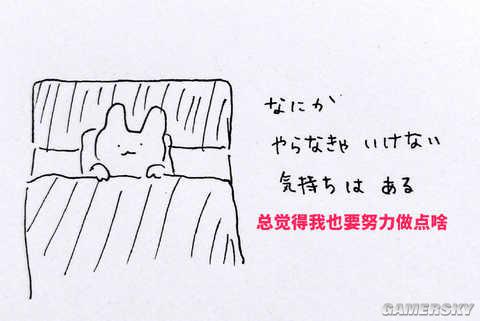 なにか
やらなきゃ いけない
気持ちは ある
总觉得我也要努力做点啥
GAMERSKY